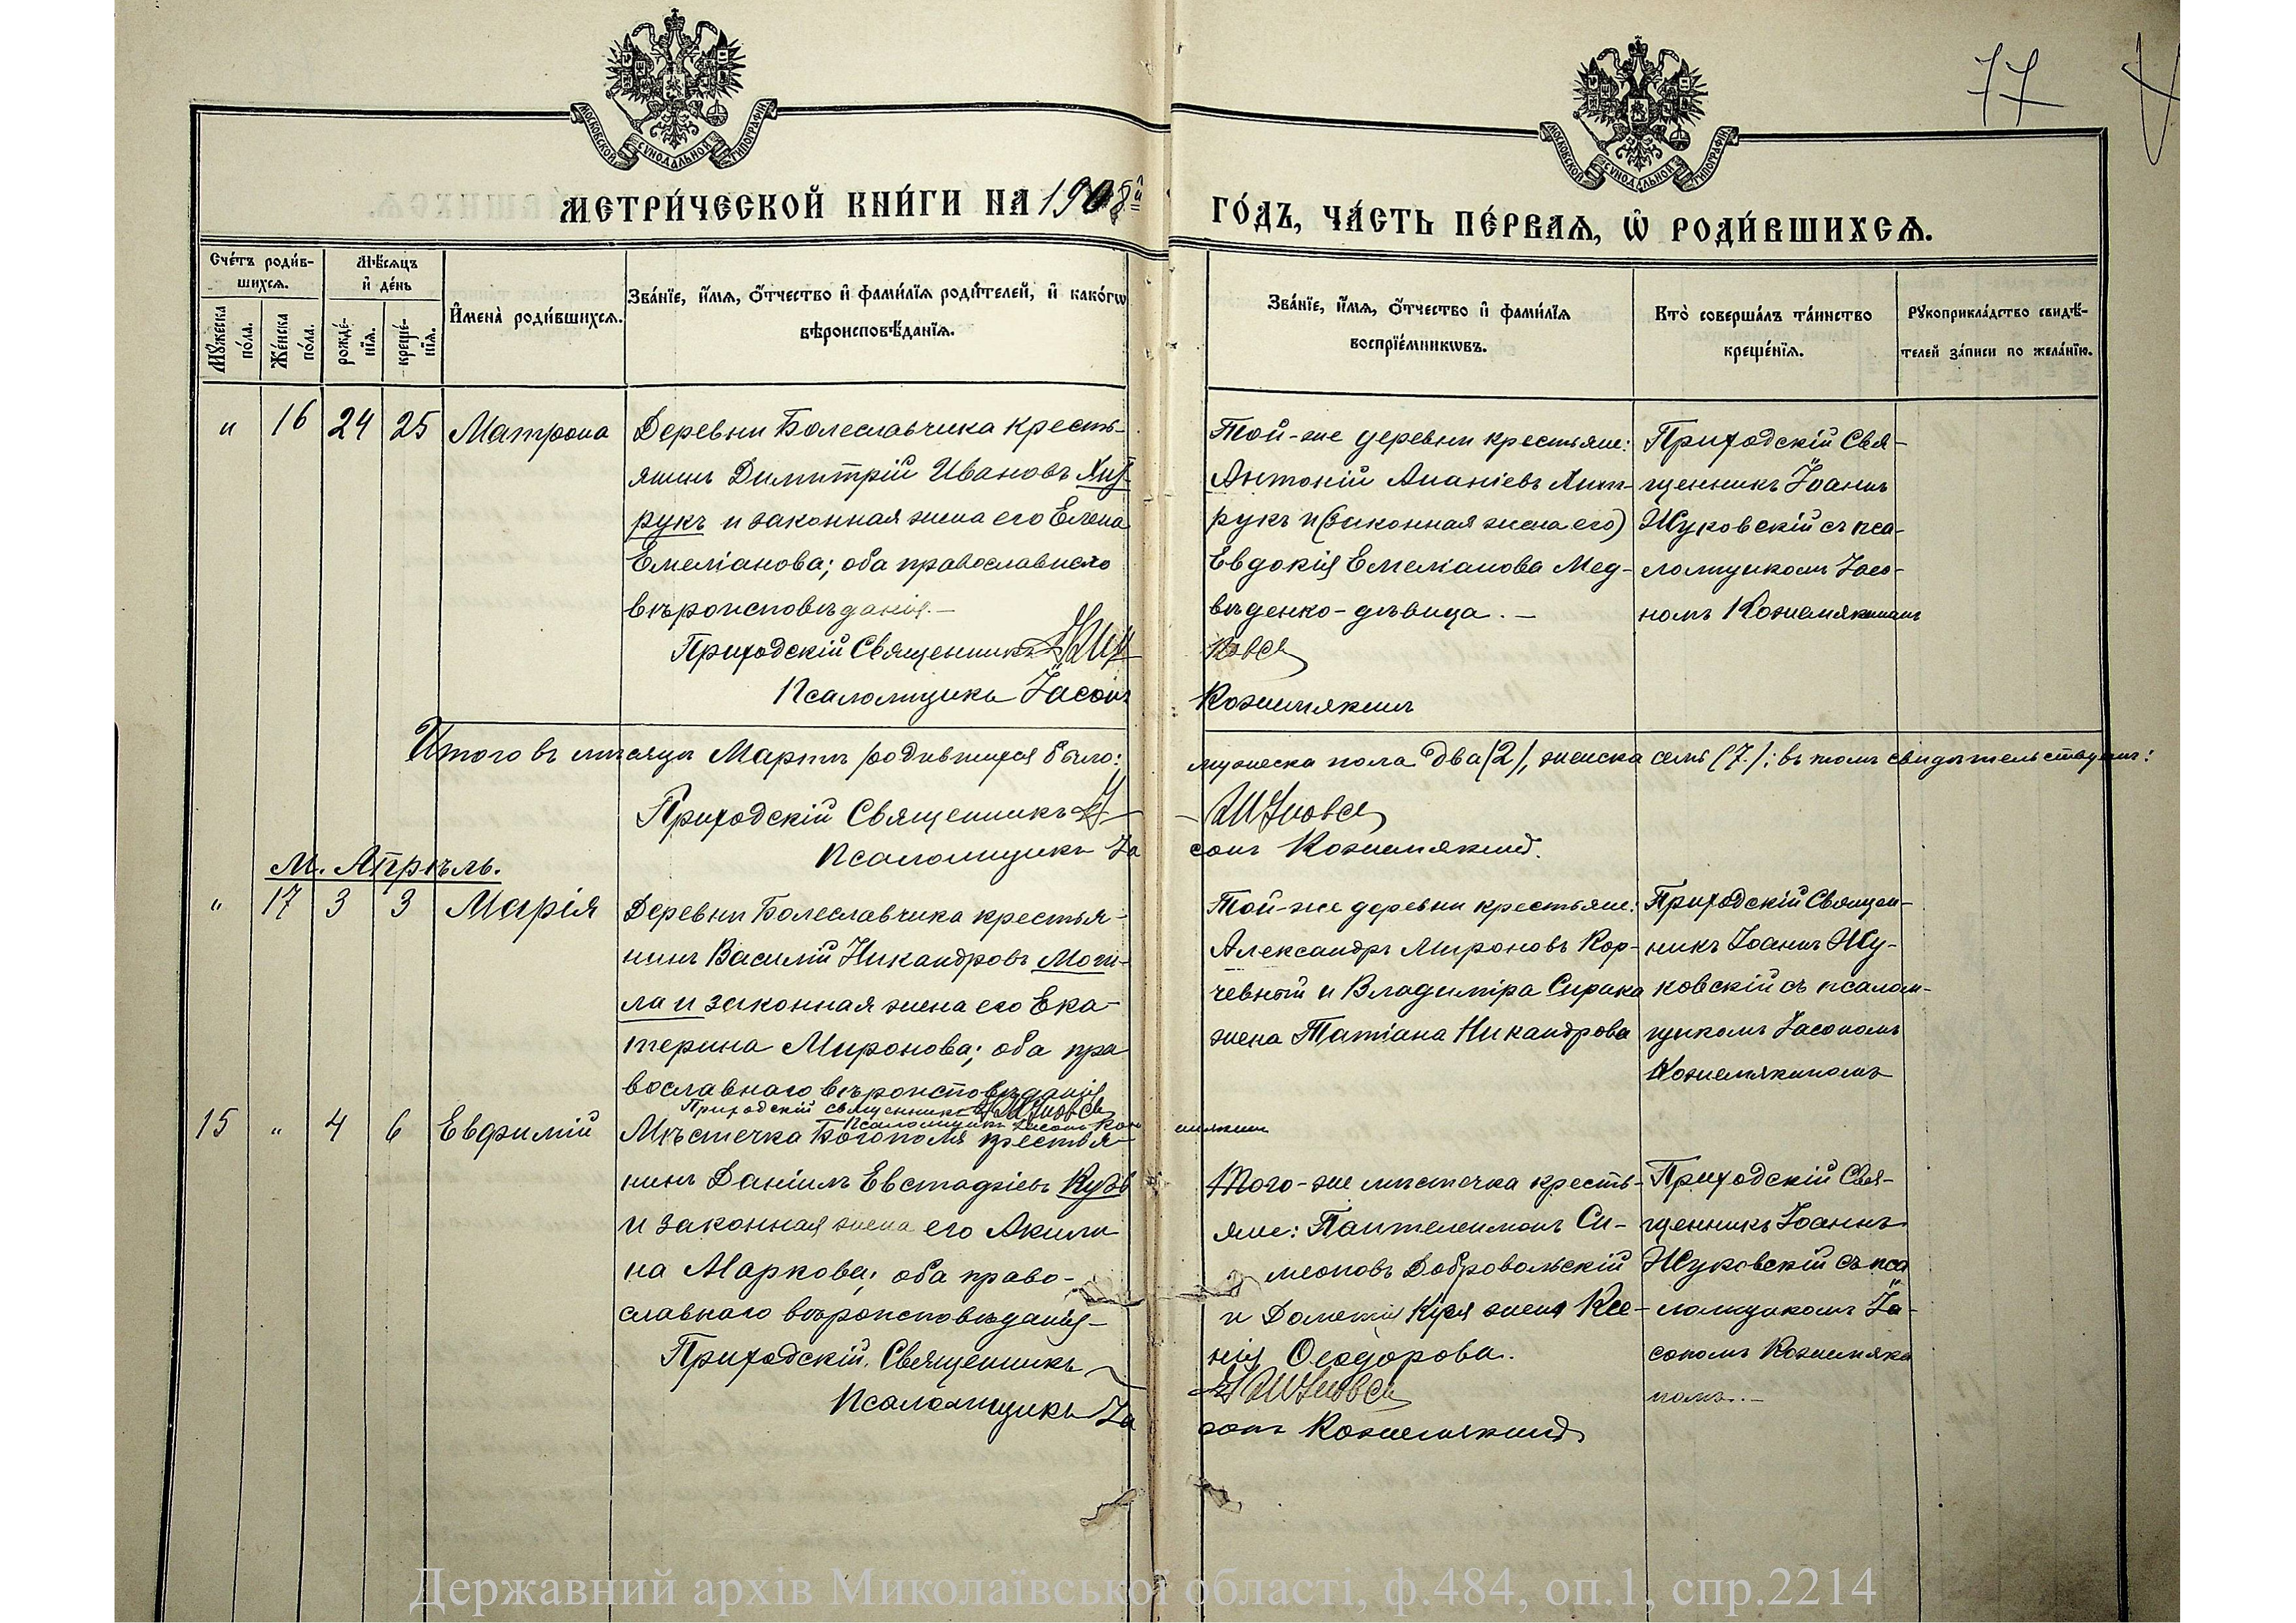 77
МОСКОВСКОЙ СУНОДАЛЬНОЙ ТИПОГРАФІИ
МОСКОВСКОЙ СУНОДАЛЬНОЙ ТИПОГРАФІИ
МЕТРИ́ЧЕСКОЙ КНИ́ГИ НА 1908й
ГО́ДЪ, ЧА́СТЬ ПЕ́РВАѦ, Ѡ҆ РОДИ́ВШИХСѦ.
Сче́тъ роди́в-
шихсѧ.
Мꙋ́жеска
по́ла.
Же́нска
по́ла.
Мѣ́сѧцъ
и҆ де́нь
рожде́-
нїѧ.
креще́-
нїѧ.
И҆мена̀ роди́вшихсѧ.
Зва́нїе, и҆́мѧ, ѻ҆́тчество и҆ фами́лїѧ роди́телей, и҆ како́гѡ
вѣроисповѣ́данїѧ.
Зва́нїе, и҆́мѧ, ѻ҆́тчество и҆ фами́лїѧ
воспрїе́мникѡвъ.
Кто̀ соверша́лъ та́инство
креще́нїѧ.
Рꙋкоприкла́дство свидѣ́-
телей за́писи по жела́нїю.
" 16 24 25 Матрона
Деревни Болеславчика кресть-
янинъ Димитрій Ивановъ
рукъ и законная жена его Елена
Емеліанова; оба православнаго
вѣроисповѣданія.—
Приходскій Священникъ
Псаломщикъ Іасонъ
Той-же деревни крестьяне:
Антоній Ананіевъ
рукъ и (законная жена его)
Евдокія Емеліанова Мед-
вѣденко-дѣвица.—
Кожемякинъ
Приходскій Свя-
щенникъ Іоаннъ
Жуковскій съ пса-
ломщикомъ Іасо-
номъ Кожемякинымъ
Итого въ мѣсяцѣ Мартѣ родившихся было: мужеска пола два (2), женска семь (7.); въ томъ свидѣтельствуемъ:
Приходскій Священникъ
Псаломщикъ Іасонъ Кожемякинъ.
М. Апрѣль.
" 17 3 3 Марія
Деревни Болеславчика крестья-
нинъ Василій Никандровъ Моги-
ла и законная жена его Ека-
терина Миронова; оба пра
вославнаго вѣроисповѣданія
Приходскій священникъ
Псаломщикъ Іасонъ Кожемякинъ
Той-же деревни крестьяне:
Александръ Мироновъ Кор-
чевный и Владиміра Сирака
жена Татіана Никандрова
Приходскій Священ-
никъ Іоаннъ Жу-
ковскій съ псалом-
щикомъ Іасономъ
Кожемякиномъ
15 " 4 6 Евфимій
Мѣстечка Богополя крестья-
нинъ Даніилъ Евстафіевъ
и законная жена его Акили
на Маркова; оба право-
славнаго вѣроисповѣданія—
Приходскій Священникъ
Псаломщикъ Іа
сонъ Кожемякинъ
Того-же мѣстечка кресть-
яне: Пантелеимонъ Си-
меоновъ Добровольскій
и жена Ксе-
нія Ѳеодорова.
Приходскій Свя-
щенникъ Іоаннъ
Жуковскій съ пса
ломщикомъ Іа-
сономъ Кожемяки
номъ.—
Державний архів Миколаївської області, ф.484, оп.1, спр.2214